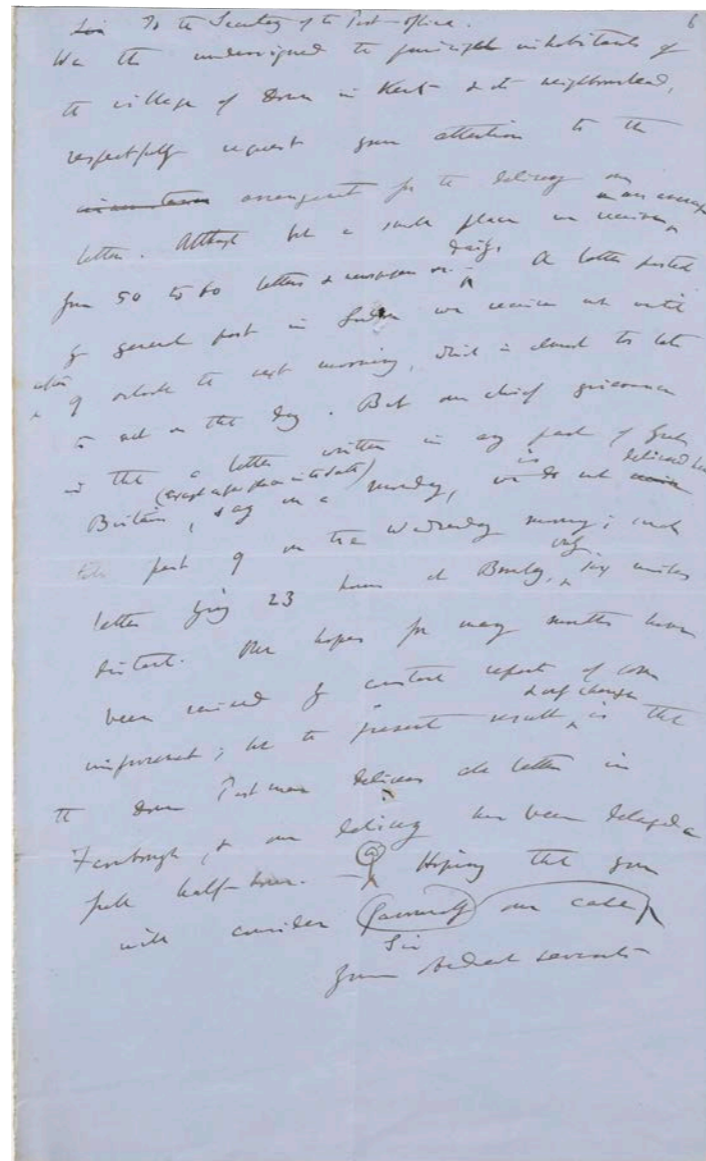 6
Sir To the Secretary of the Post-office.
We the undersigned the principle inhabitants of
the village of Down in Kent & its neighbourhead,
respectfully request your attention to the
circumstances arrangement for the delivery our
letters. Although but a small place we receive on an average
from 50 to 60 letters & newspapers daily. A letter posted
by general post in London we receive not until
after 9 oclock the next morning, which is almost too late
to act on that day. But our chief grievance
is that a letter written in any part of Great
Britain, (except a few places in its date) say on a Monday, is we do not delivered
till past 9 on the Wednesday morning; such
letter lying 23 hours at Bromley, only six miles
distant. Our hopes for many months have
been raised by constant reports of some
improvement; but the present result & only change is that
the Down Postman delivers the letters in
Farnborough, & our delivery has been delayed a
full half-hour. — Hoping that you
will consider favourably our case,
Sir
your obedient servants